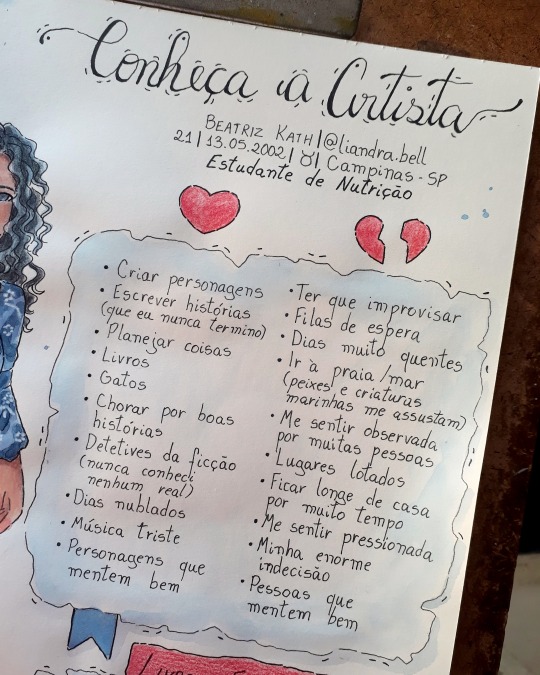 Conheça a Artista
Beatriz Kath | @liandra.bell
21 | 13.05.2002 | ♉ | Campinas - SP
Estudante de Nutrição
• Criar personagens
• Escrever histórias
(que eu nunca termino)
• Planejar coisas
• Livros
• Gatos
• Chorar por boas
histórias
• Detetives da ficção
(nunca conheci
nenhum real)
• Dias nublados
• Música triste
• Personagens que
mentem bem
• Ter que improvisar
• Filas de espera
• Dias muito quentes
• Ir à praia/mar
(peixes e criaturas
marinhas me assustam)
• Me sentir observada
por muitas pessoas
• Lugares lotados
• Ficar longe de casa
por muito tempo
• Me sentir pressionada
• Minha enorme
indecisão
• Pessoas que
mentem bem